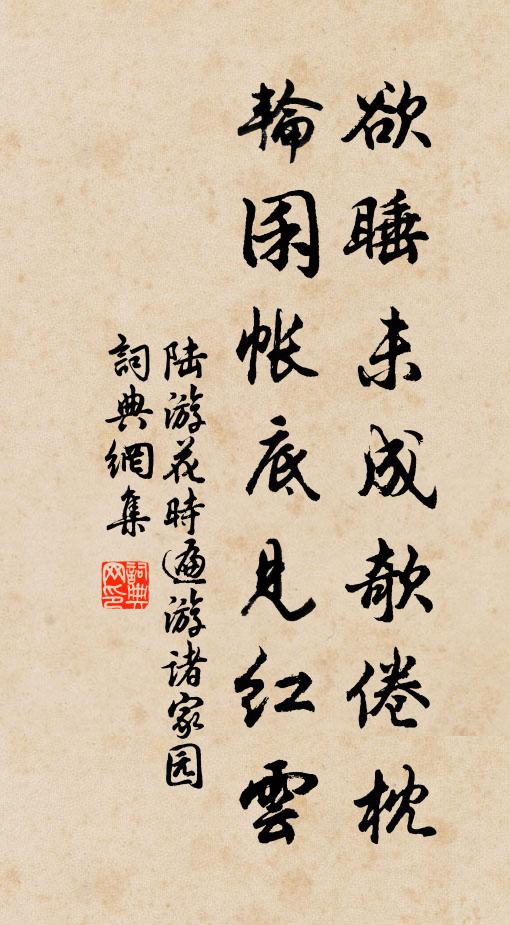 欲睡未成欹倦枕
輪囷帐底見红雲
陆游花時遍游诸家园
詞典網集
詞典网印